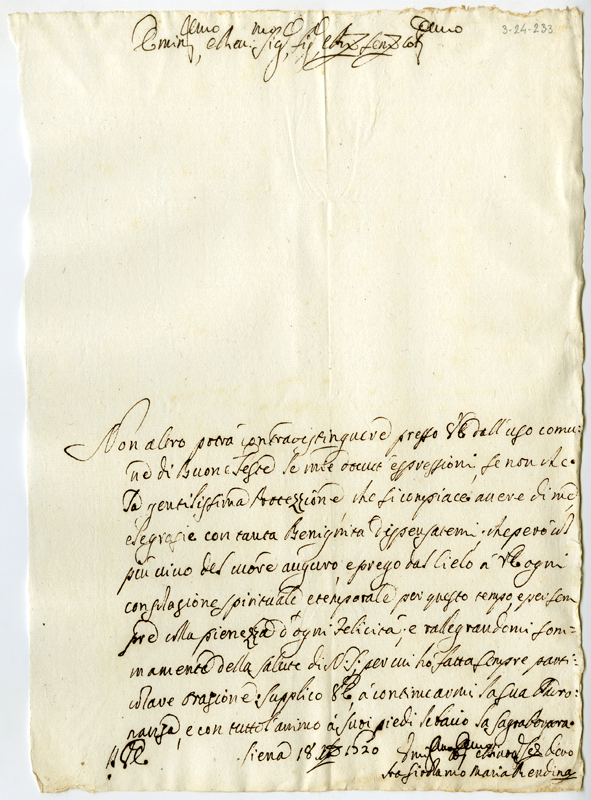 3-24-233
Emin et Reu Sig Sig
Non altro potrà contradistinguere presso VE dall'uso comu:
ne di Buone Feste le mie dovute espressioni, se non che
la gentilissima Protezzione che si compiace avere di me,
e le grazie con tanta Benignità dispensatemi, che però col
più vivo del cuore auguro, e prego dal Cielo à VE ogni
consolazione spirituale e temporale per questo tempo, e per sem
pre colla pienezza d'ogni Felicità; e rallegrandomi som=
mamente della salute di N: S: per cui hò fatta sempre parti
colare orazione: supplico VE à continuarmi la sua
e con tutto l'animo à suoi piedi le bacio la sagra
VE Siena 18 1720
Girolamo Maria